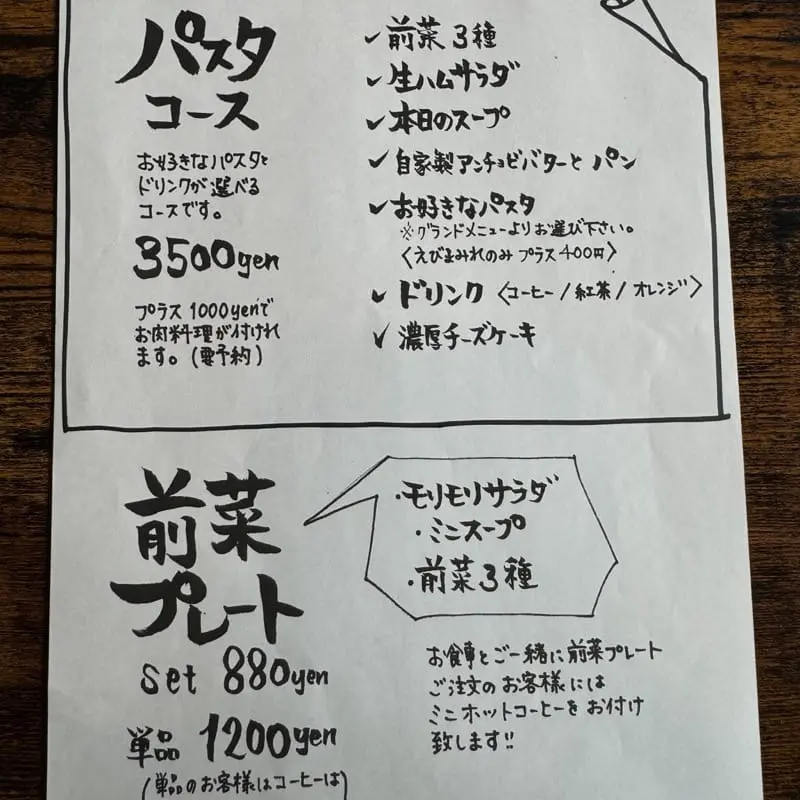 パスタ
コース
お好きなパスタと
ドリンクが選べる
コースです。
3500yen
プラス1000yenで
お肉料理が付けれ
ます。(要予約)
✓前菜3種
✓生ハムサラダ
✓本日のスープ
✓自家製アンチョビバターと パン
✓お好きなパスタ
※グランドメニューよりお選び下さい。
〈えびまみれのみ プラス400円〉
✓ドリンク〈コーヒー/紅茶/オレンジ〉
✓濃厚チーズケーキ
前菜
プレート
set 880yen
単品 1200yen
(単品のお客様はコーヒーは)
・モリモリサラダ
・ミニスープ
・前菜3種
お食事とご一緒に前菜プレート
ご注文のお客様には
ミニホットコーヒーをお付け
致します!!